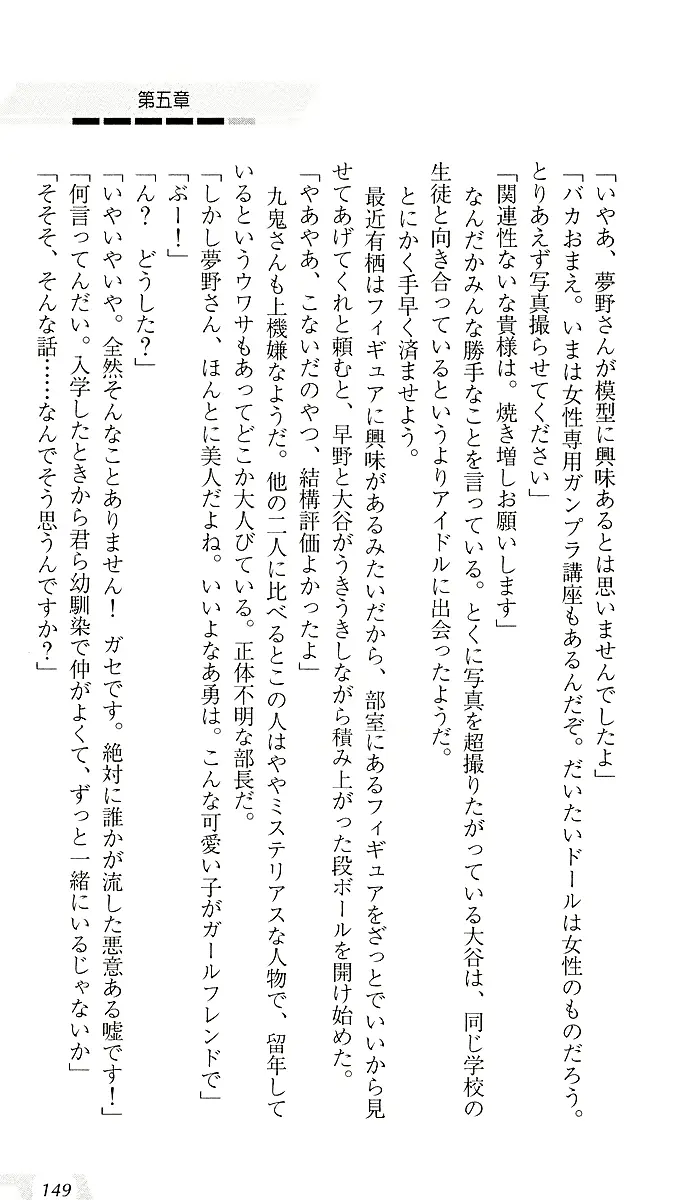 第五章
「いやあ、夢野さんが模型に興味あるとは思いませんでしたよ」
「バカおまえ。いまは女性専用ガンプラ講座もあるんだぞ。だいたいドールは女性のものだろう。
とりあえず写真撮らせてください」
「関連性ないな貴様は。焼き増しお願いします」
　なんだかみんな勝手なことを言っている。とくに写真を超撮りたがっている大谷は、同じ学校の
生徒と向き合っているというよりアイドルに出会ったようだ。
　とにかく手早く済ませよう。
　最近有栖はフィギュアに興味があるみたいだから、部室にあるフィギュアをざっとでいいから見
せてあげてくれと頼むと、早野と大谷がうきうきしながら積み上がった段ボールを開け始めた。
「やあやあ、こないだのやつ、結構評価よかったよ」
　九鬼さんも上機嫌なようだ。他の二人に比べるとこの人はややミステリアスな人物で、留年して
いるというウワサもあってどこか大人びている。正体不明な部長だ。
「しかし夢野さん、ほんとに美人だよね。いいよなあ勇は。こんな可愛い子がガールフレンドで」
「ぶー！」
「ん？　どうした？」
「いやいやいや。全然そんなことありません！　ガセです。絶対に誰かが流した悪意ある嘘です！」
「何言ってんだい。入学したときから君ら幼馴染で仲がよくて、ずっと一緒にいるじゃないか」
「そそそ、そんな話……なんでそう思うんですか？」
149